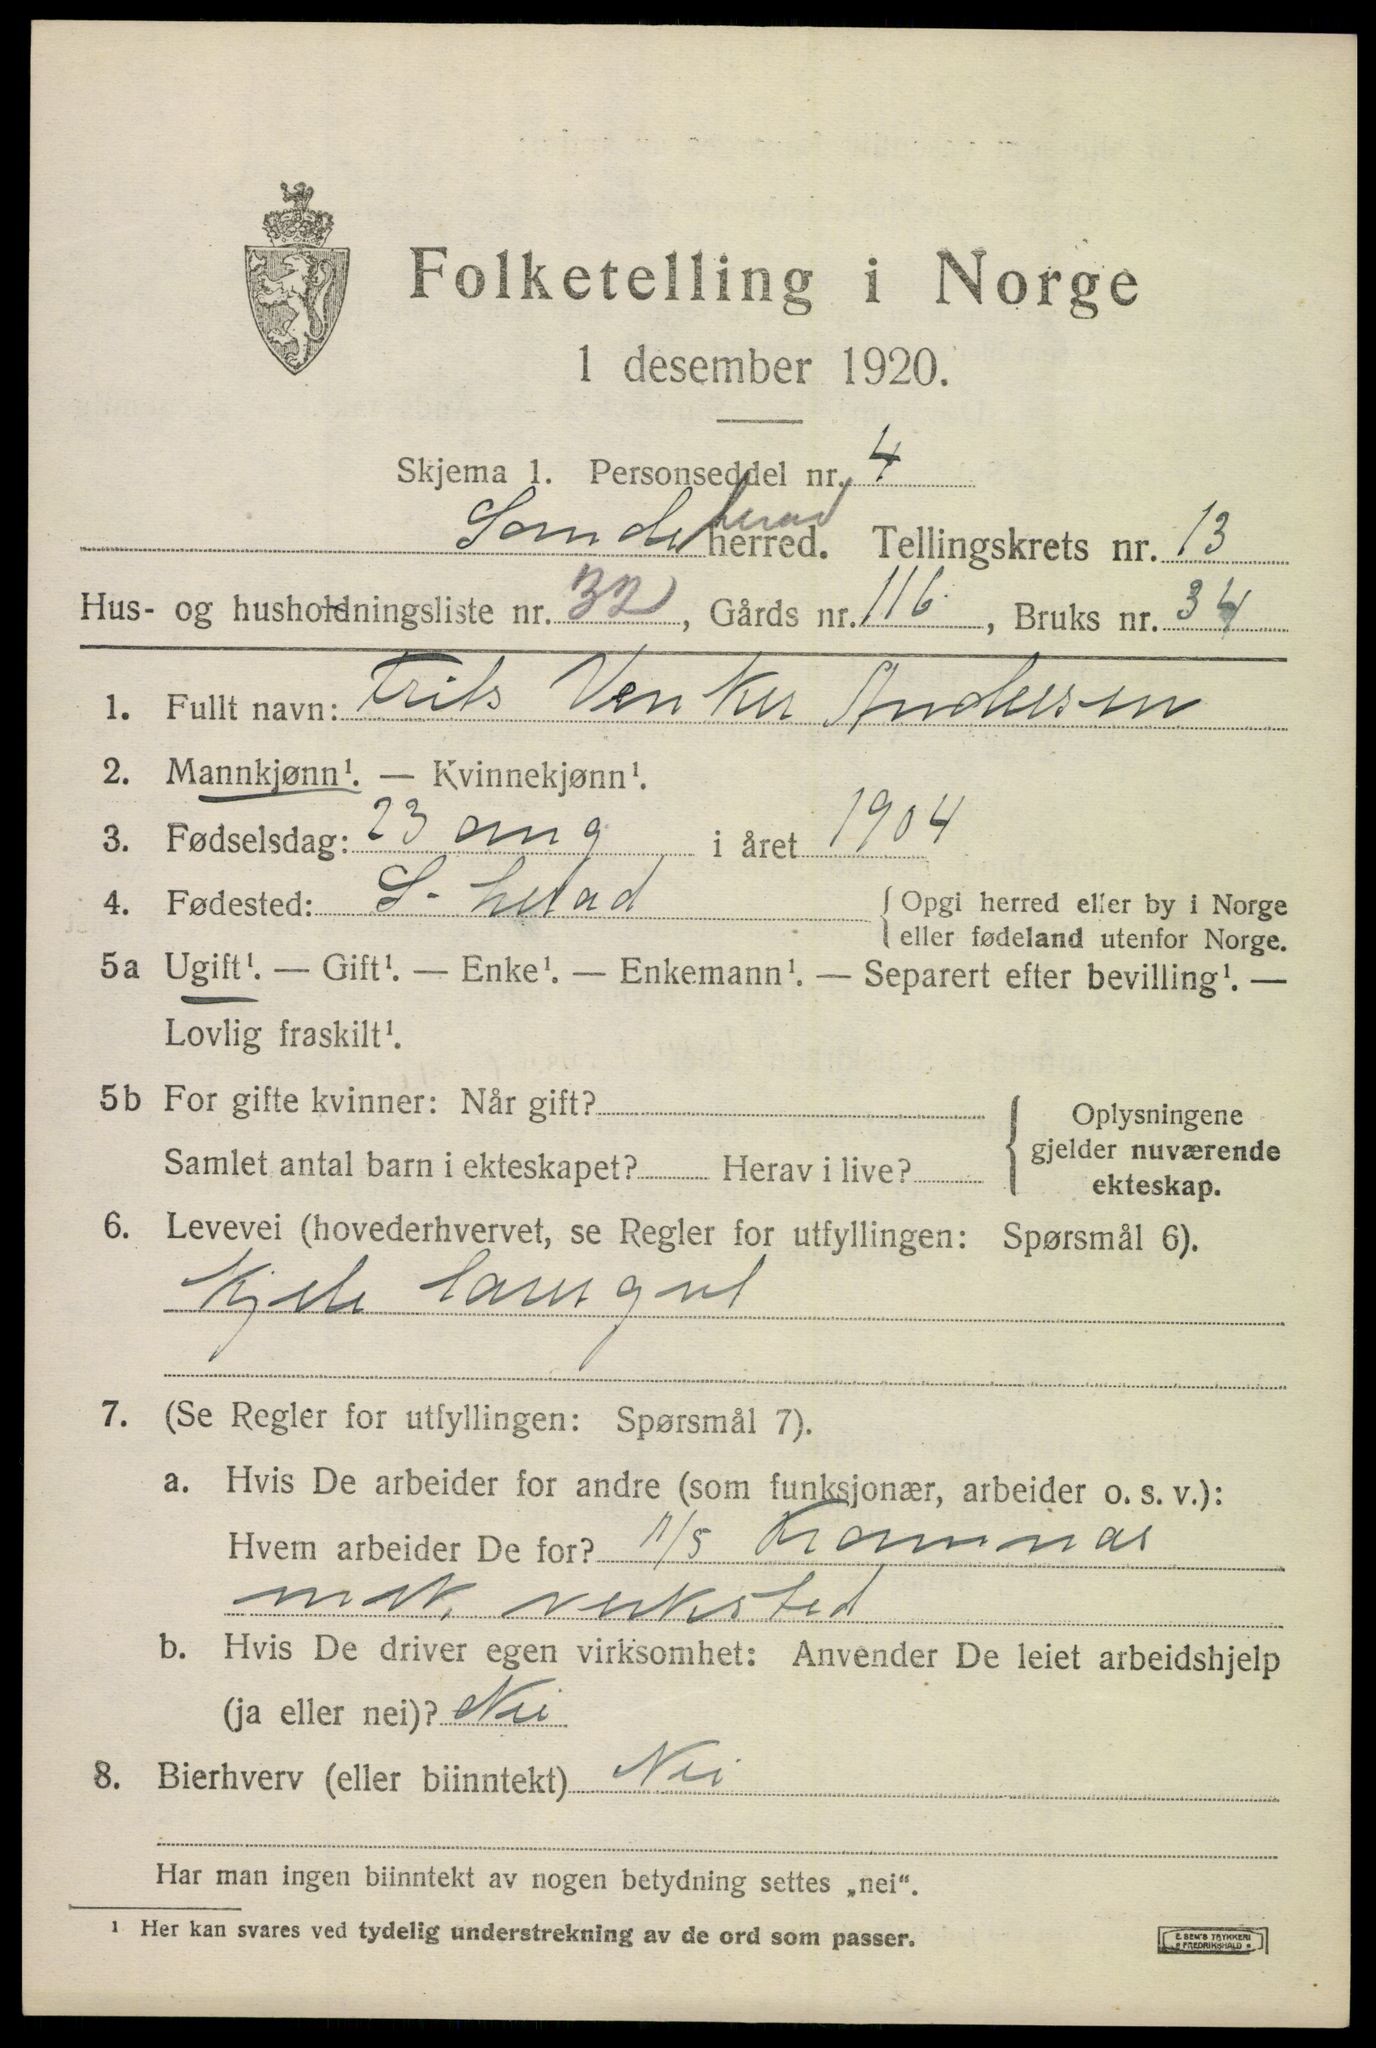 Folketelling i Norge
1 desember 1920.
Skjema 1. Personseddel nr. 4
Sandeherad herred. Tellingskrets nr. 13
Hus- og husholdningsliste nr. 32, Gårds nr. 116, Bruks nr. 34
1. Fullt navn: Frits Venker Andersen
2. Mannkjønn¹. — Kvinnekjønn¹.
3. Fødselsdag: 23 aug i året 1904
4. Fødested: S-herad { Opgi herred eller by i Norge
eller fødeland utenfor Norge.
5a Ugift¹. — Gift¹. — Enke¹. — Enkemann¹. — Separert efter bevilling¹. —
Lovlig fraskilt¹.
5b For gifte kvinner: Når gift?
Samlet antal barn i ekteskapet? Herav i live?
Oplysningene
gjelder nuværende
ekteskap.
6. Levevei (hovederhvervet, se Regler for utfyllingen: Spørsmål 6).
Kjele
7. (Se Regler for utfyllingen: Spørsmål 7).
a. Hvis De arbeider for andre (som funksjonær, arbeider o. s. v.):
Hvem arbeider De for? A/S Framnæs
mek. verksted
b. Hvis De driver egen virksomhet: Anvender De leiet arbeidshjelp
(ja eller nei)? Nei
8. Bierhverv (eller biinntekt) Nei
Har man ingen biinntekt av nogen betydning settes „nei“.
¹ Her kan svares ved tydelig understrekning av de ord som passer.
E SEM'S TRYKKERI
FREDRIKSHALD